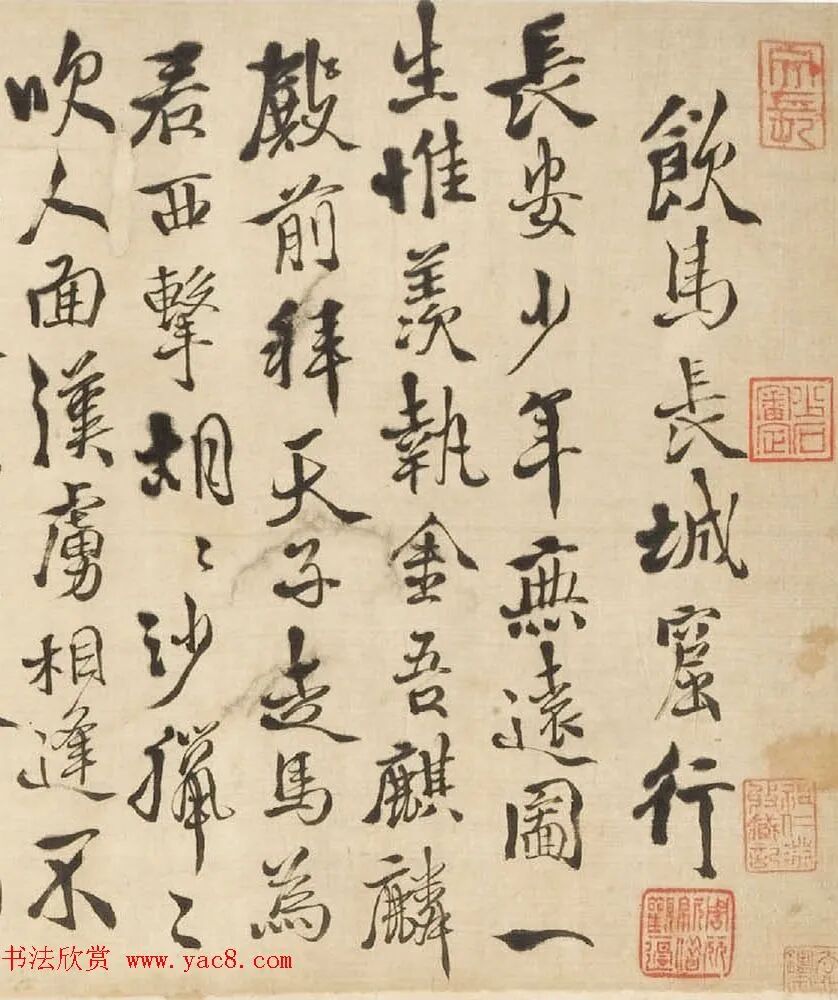 飲馬長城窟行
長安少年無遠圖一
生惟羨執金吾麒麟
殿前拜天子走馬為
君西擊胡〻沙獵〻
吹人面漢虜相逢不
书法欣赏 www.yac8.com